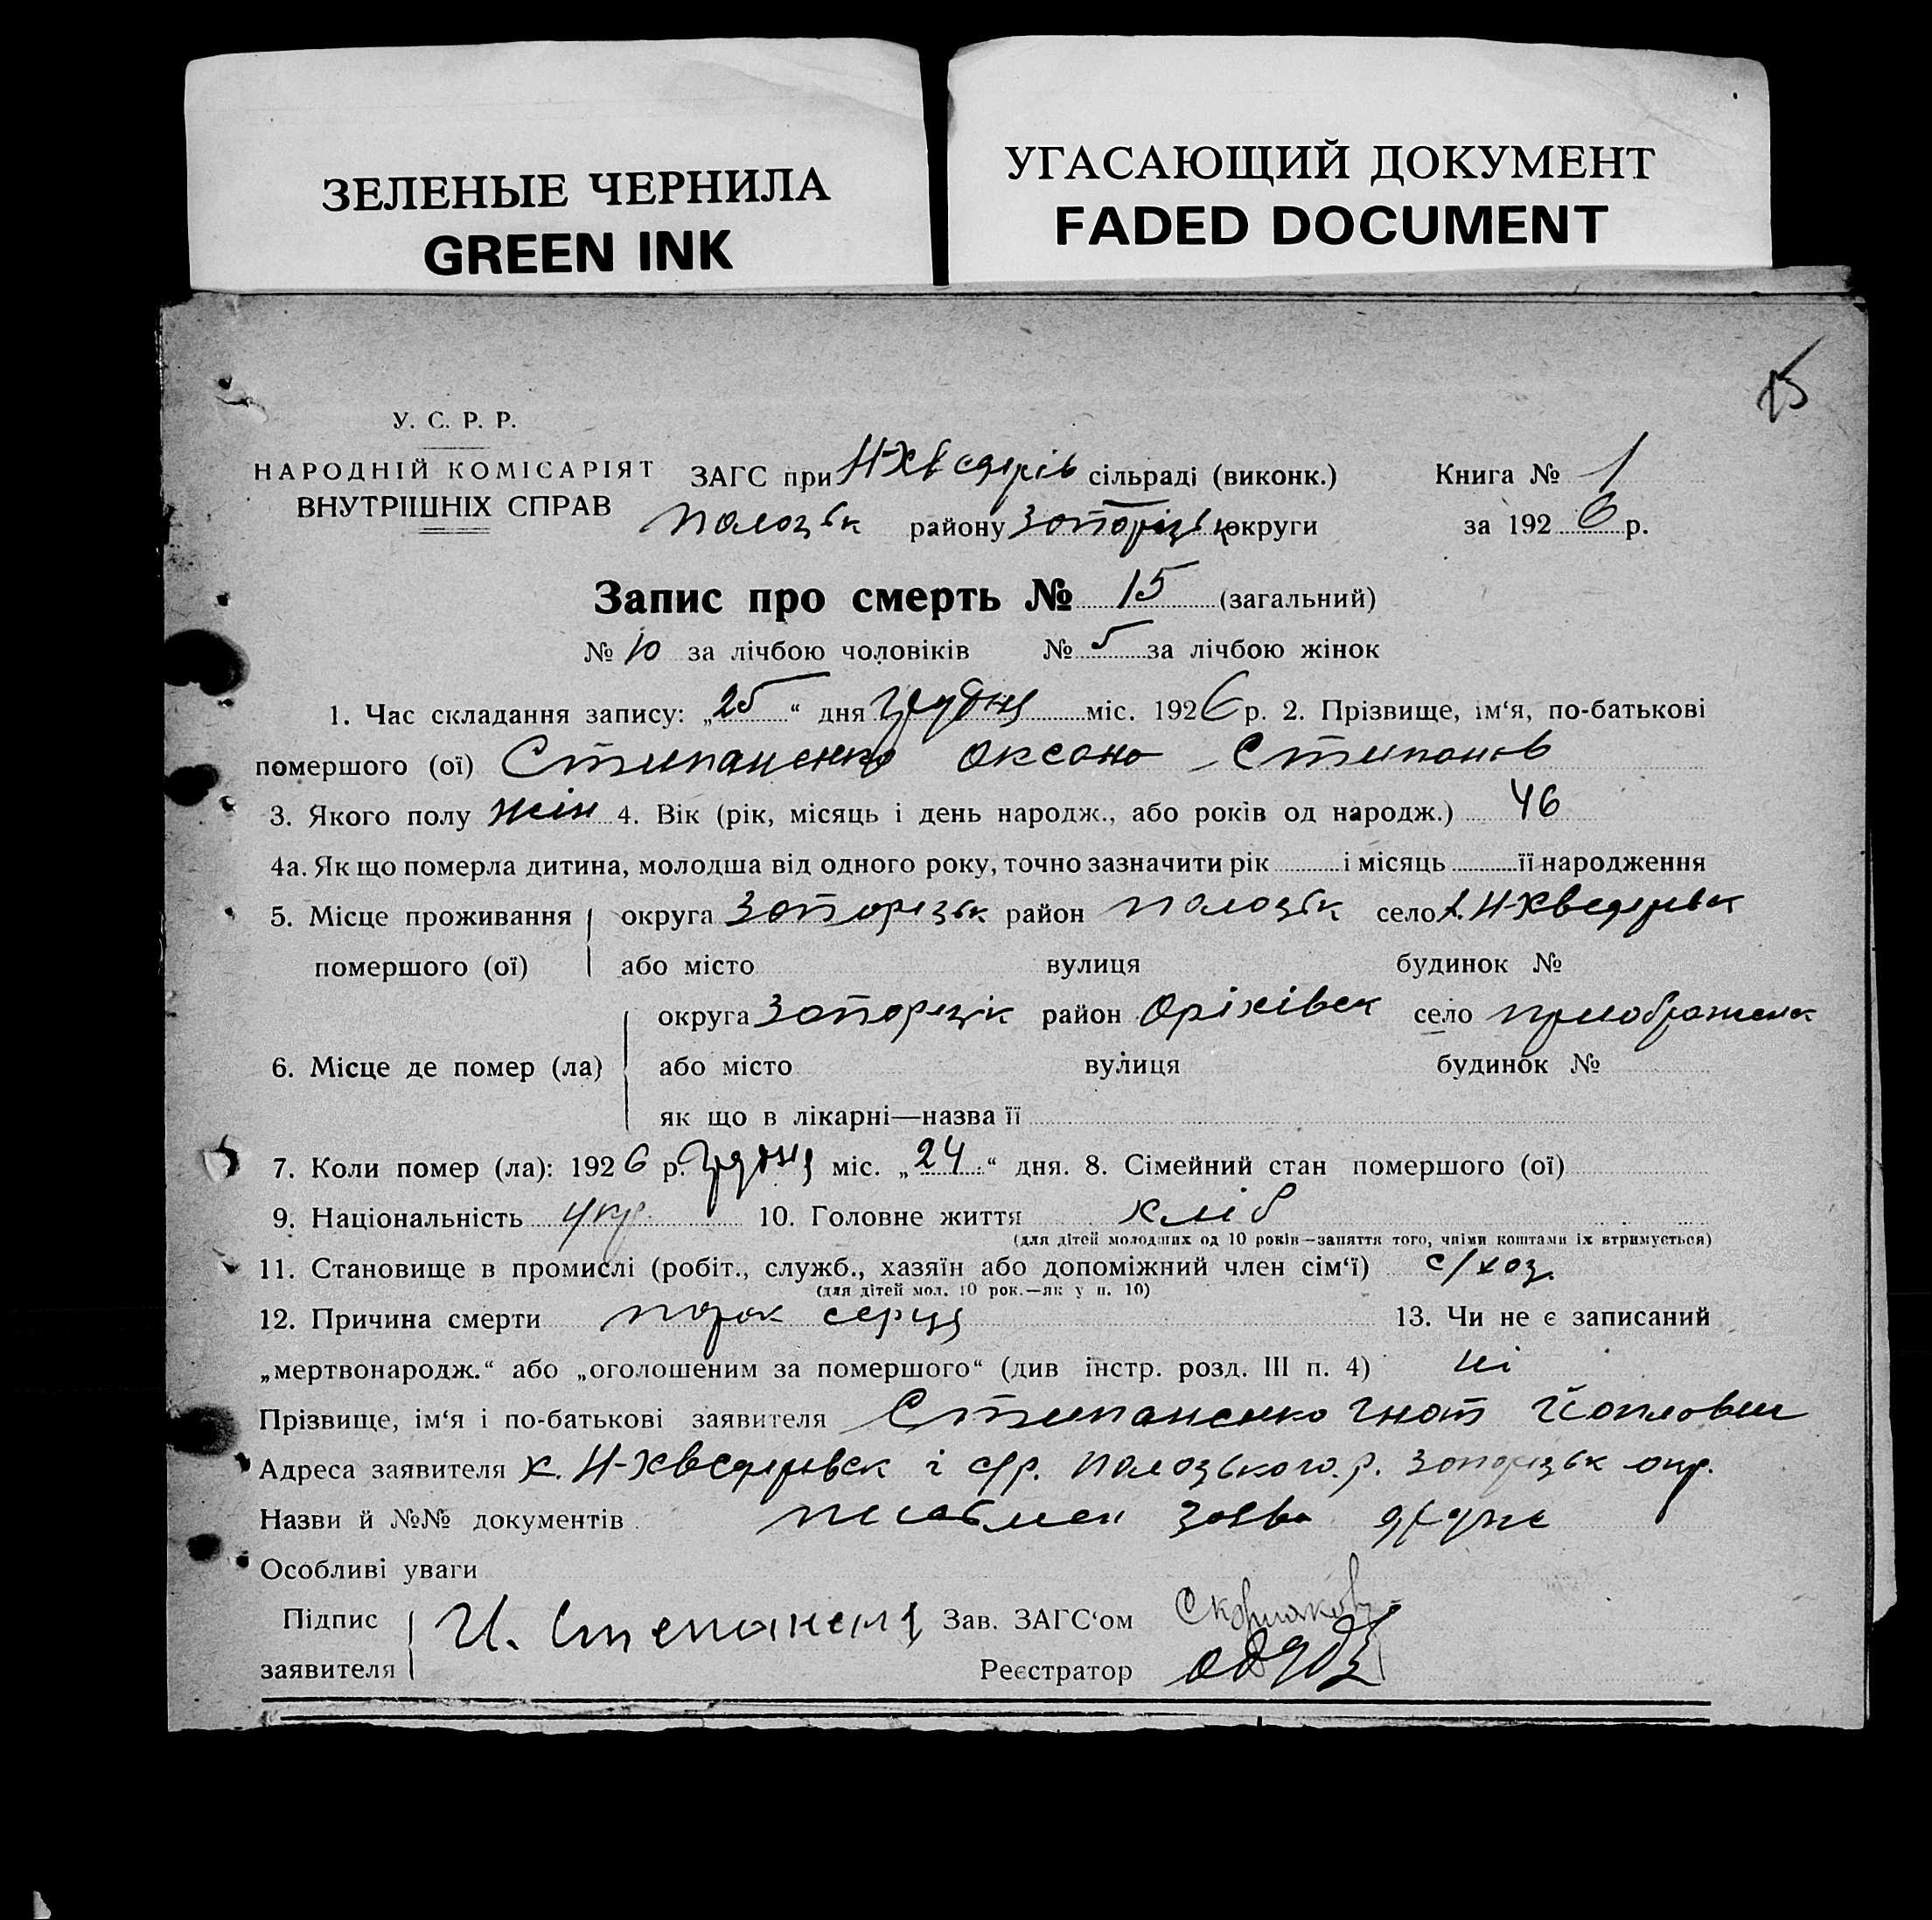 ЗЕЛЕНЫЕ ЧЕРНИЛА
GREEN INK
УГАСАЮЩИЙ ДОКУМЕНТ
FADED DOCUMENT
15
У. С. Р. Р.
НАРОДНІЙ КОМІСАРІЯТ
ВНУТРІШНІХ СПРАВ
ЗАГС при Н-Хведерів сільраді (виконк.)
Полозьк району Запорізьк округи
Книга № 1
за 1926 р.
Запис про смерть № 15 (загальний)
№ 10 за лічбою чоловіків № 5 за лічбою жінок
1. Час складання запису: „25“ дня грудня міс. 1926 р. 2. Прізвище, ім‘я, по-батькові
помершого (ої) Стипаненко Оксана Стипанов
3. Якого полу жін 4. Вік (рік, місяць і день народж., або років од народж.) 46
4а. Як що померла дитина, молодша від одного року, точно зазначити рік і місяць її народження
5. Місце проживання округа Запорізьк район Полозьк село Н-Хведеревк
помершого (ої) або місто вулиця будинок №
округа Запорізьк район Оріхівськ село Приображенк
6. Місце де помер (ла) або місто вулиця будинок №
як що в лікарні—назва її
7. Коли помер (ла): 1926 р. грудня міс. „24“ дня. 8. Сімейний стан помершого (ої)
9. Національність укр 10. Головне життя хліб
(для дітей молодших од 10 років—заняття того, чиїми коштами їх втримується)
11. Становище в промислі (робіт., служб., хазяїн або допоміжний член сім‘ї) с/хоз.
(для дітей мол. 10 рок.—як у п. 10)
12. Причина смерти порок серця 13. Чи не є записаний
„мертвонародж.“ або „оголошеним за помершого“ (див інстр. розд. III п. 4) ні
Прізвище, ім‘я і по-батькові заявителя Стипаненко Гнат
Адреса заявителя х. Н-Хведеревск с/р. Полозького р. Запорізьк окр.
Назви й №№ документів заява
Особливі уваги
Підпис
заявителя И.
Зав. ЗАГС‘ом
Реєстратор